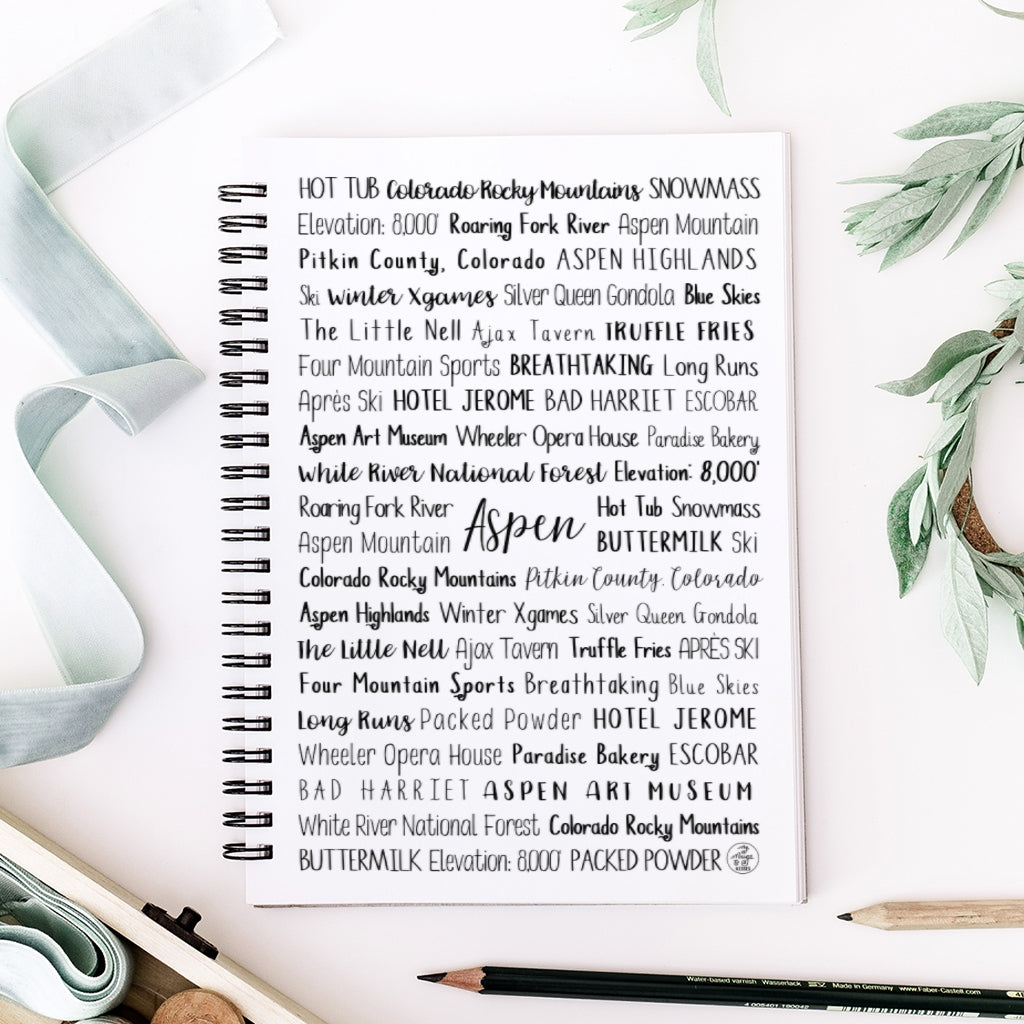 HOT TUB Colorado Rocky Mountains SNOWMASS
Elevation: 8,000' Roaring Fork River Aspen Mountain
Pitkin County, Colorado ASPEN HIGHLANDS
Ski Winter Xgames Silver Queen Gondola Blue Skies
The Little Nell Ajax Tavern TRUFFLE FRIES
Four Mountain Sports BREATHTAKING Long Runs
Après Ski HOTEL JEROME BAD HARRIET ESCOBAR
Aspen Art Museum Wheeler Opera House Paradise Bakery
White River National Forest Elevation: 8,000'
Roaring Fork River Hot Tub Snowmass
Aspen
Aspen Mountain BUTTERMILK Ski
Colorado Rocky Mountains Pitkin County, Colorado
Aspen Highlands Winter Xgames Silver Queen Gondola
The Little Nell Ajax Tavern Truffle Fries APRÈS SKI
Four Mountain Sports Breathtaking Blue Skies
Long Runs Packed Powder HOTEL JEROME
Wheeler Opera House Paradise Bakery ESCOBAR
BAD HARRIET ASPEN ART MUSEUM
White River National Forest Colorado Rocky Mountains
BUTTERMILK Elevation: 8,000' PACKED POWDER
Water-based varnish Wasserlack Made in Germany www.Faber-Castell.com
4 005401 190042